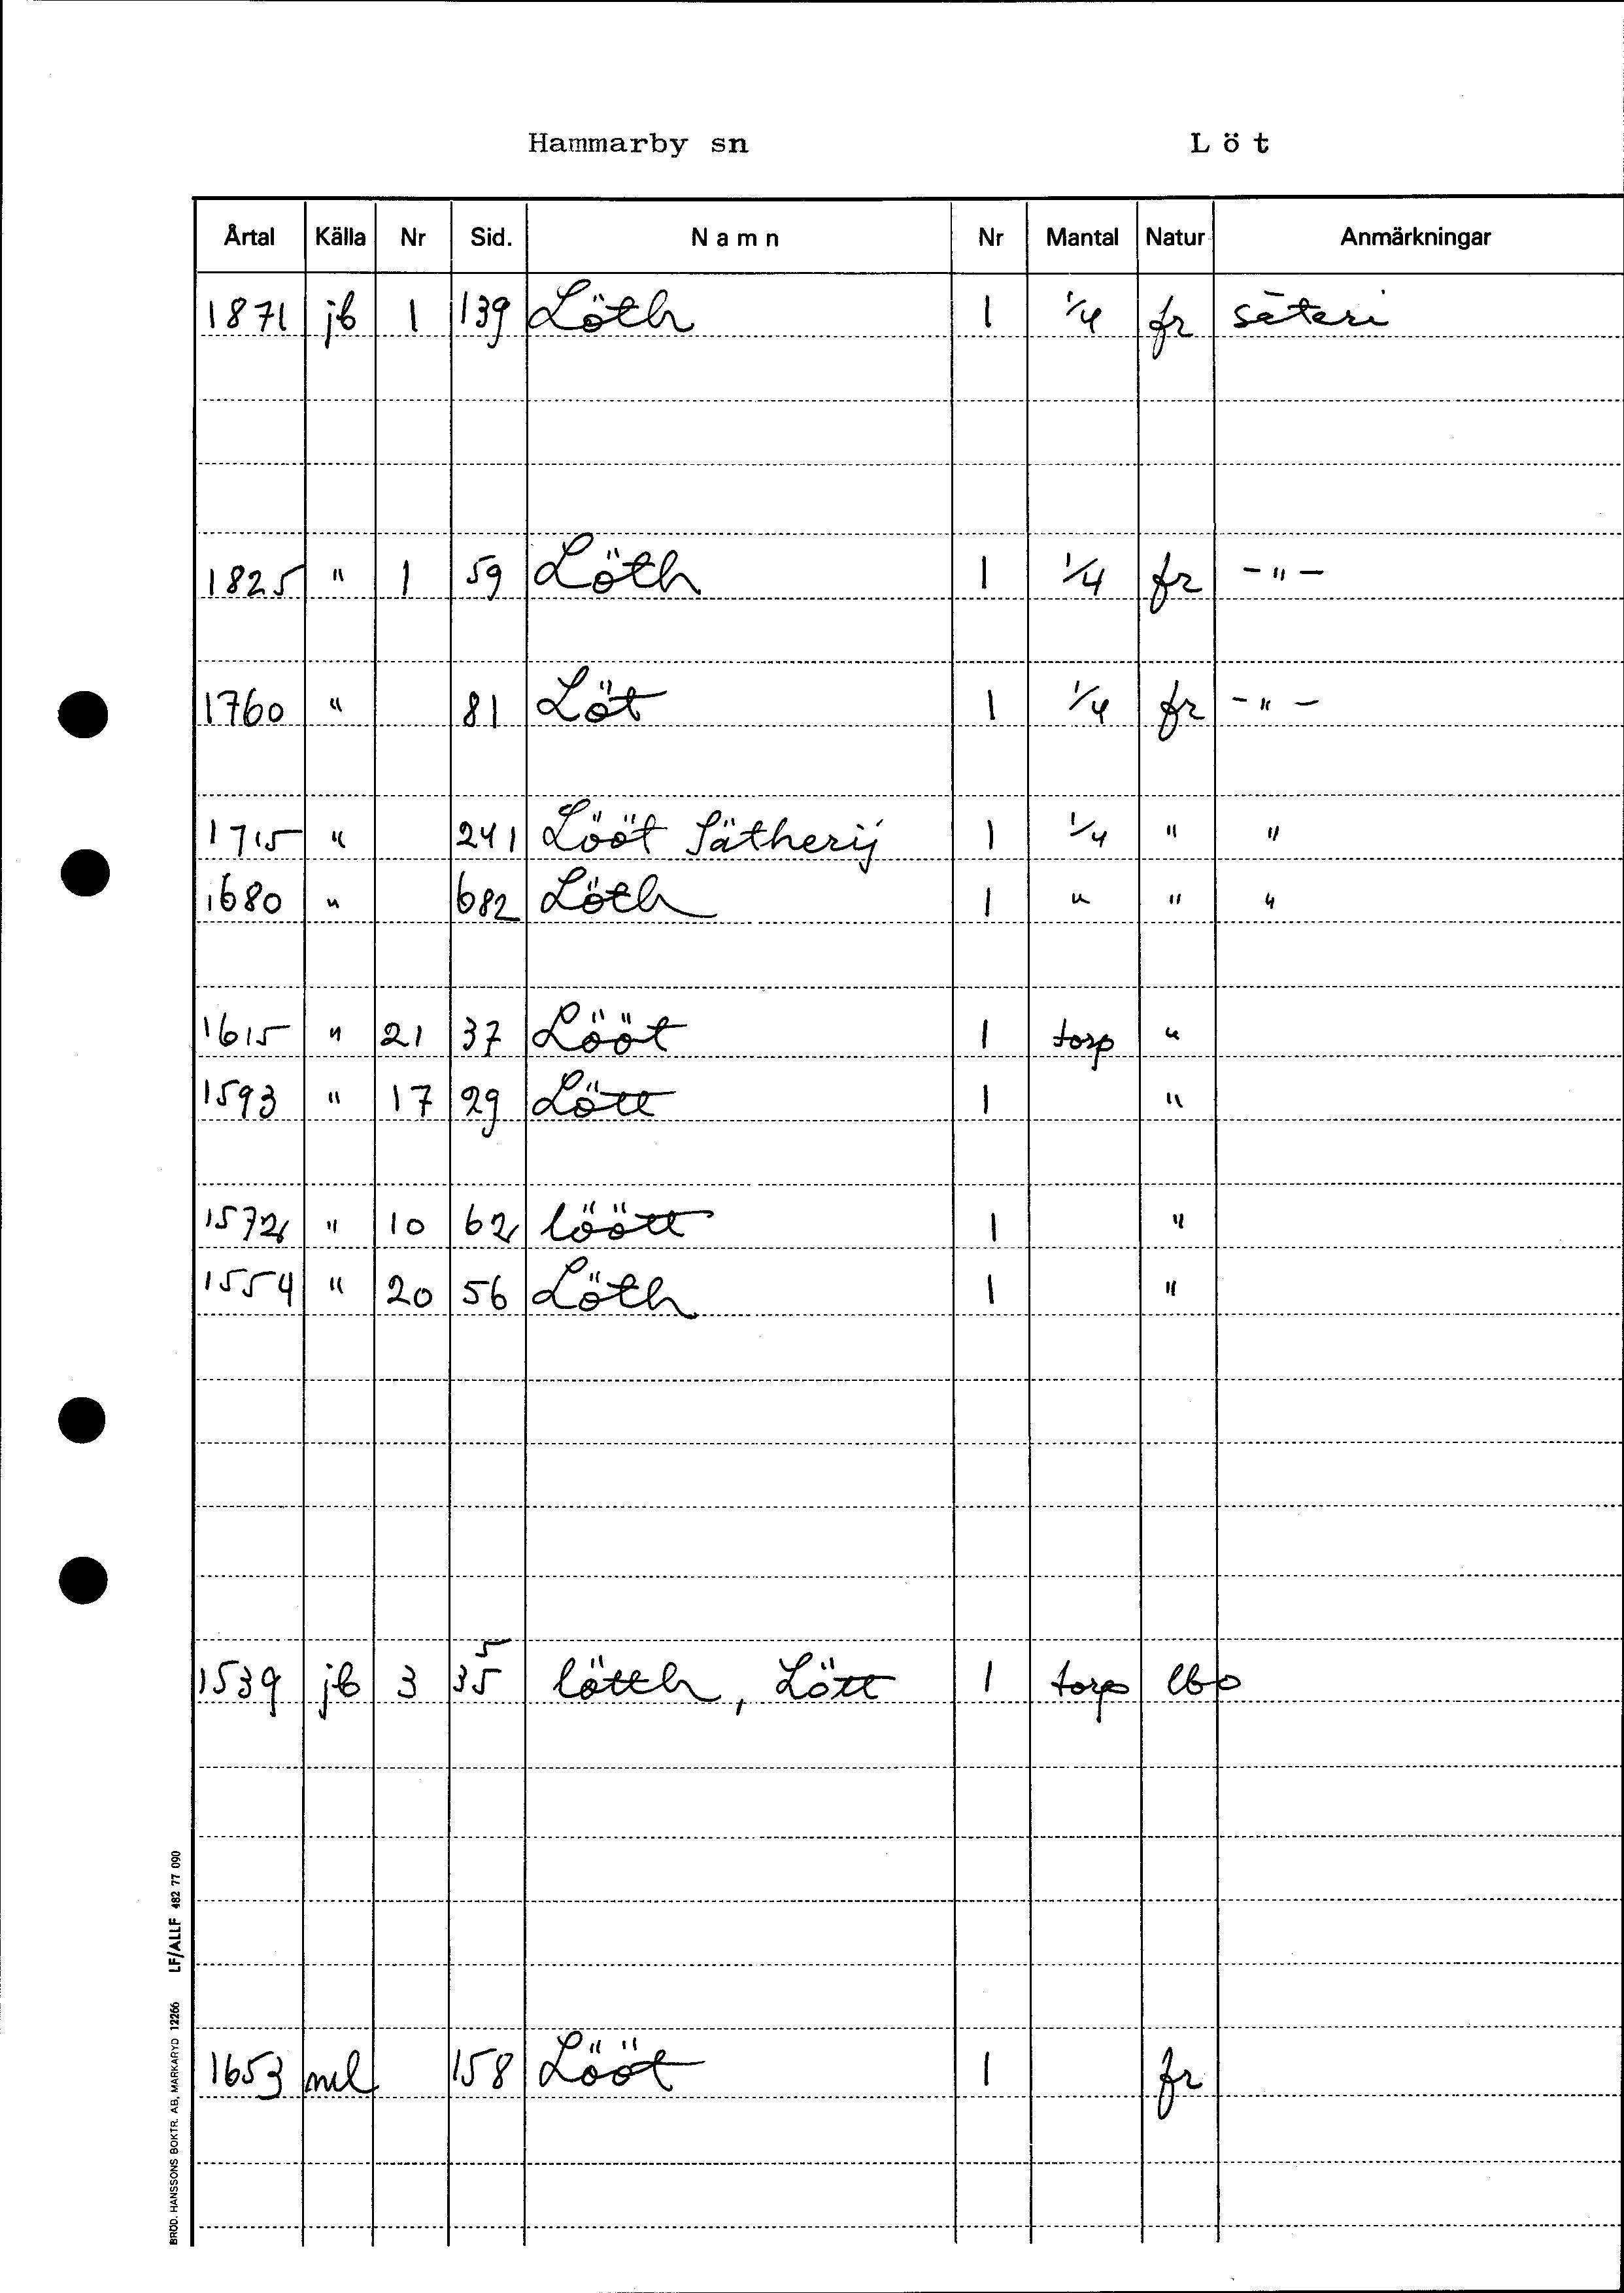 Hammarby sn L ö t
Årtal Källa Nr Sid. Namn Nr Mantal Natur Anmärkningar
1871 jb 1 139 Löth 1 1/4 fr säteri
1825 " 1 59 Löth 1 1/4 fr -"-
1760 " 81 Löt 1 1/4 fr -"-
1715 " 241 Lööt Sätherij 1 1/4 " "
1680 " 682 Löth 1 " " "
1615 " 21 37 Lööt 1 torp "
1593 " 17 29 Lött 1 "
1572 " 10 62 löött 1 "
1554 " 20 56 Löth 1 "
5
1539 jb 3 35 lötth, Lött 1 torp lbo
1653 ml 158 Lööt 1 fr
BRÖD. HANSSONS BOKTR. AB, MARKARYD 12266 LF/ALLF 482 77 090